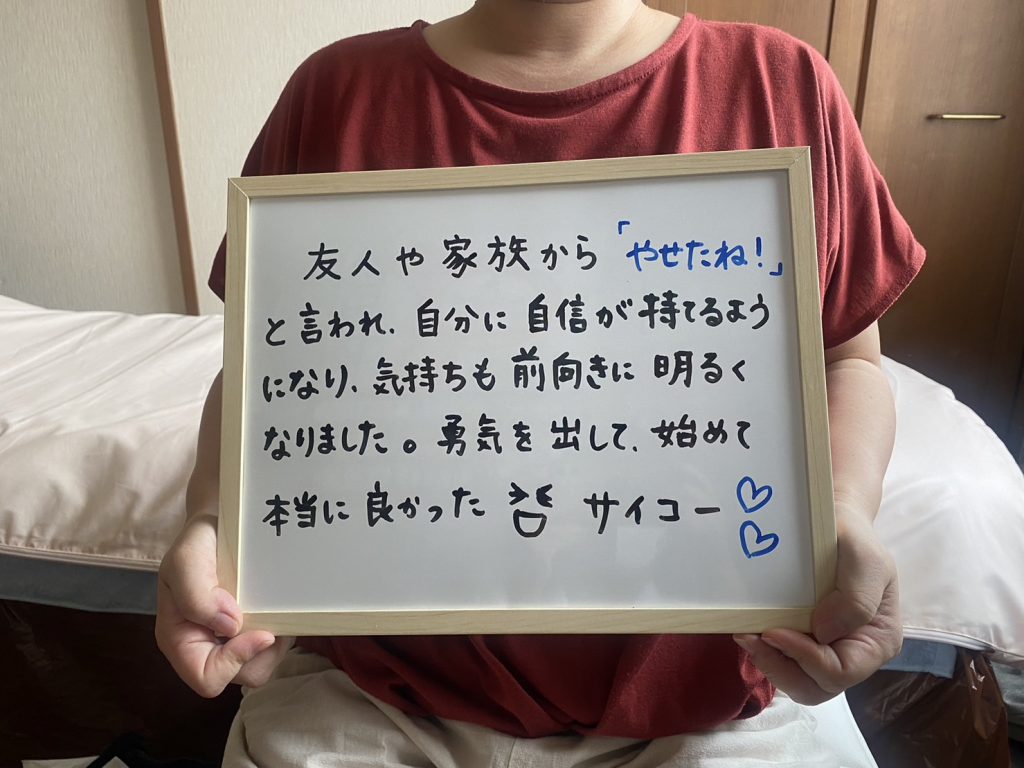 友人や家族から「やせたね!」
と言われ、自分に自信が持てるよう
になり、気持ちも前向きに明るく
なりました。勇気を出して、始めて
本当に良かった サイコー♡♡